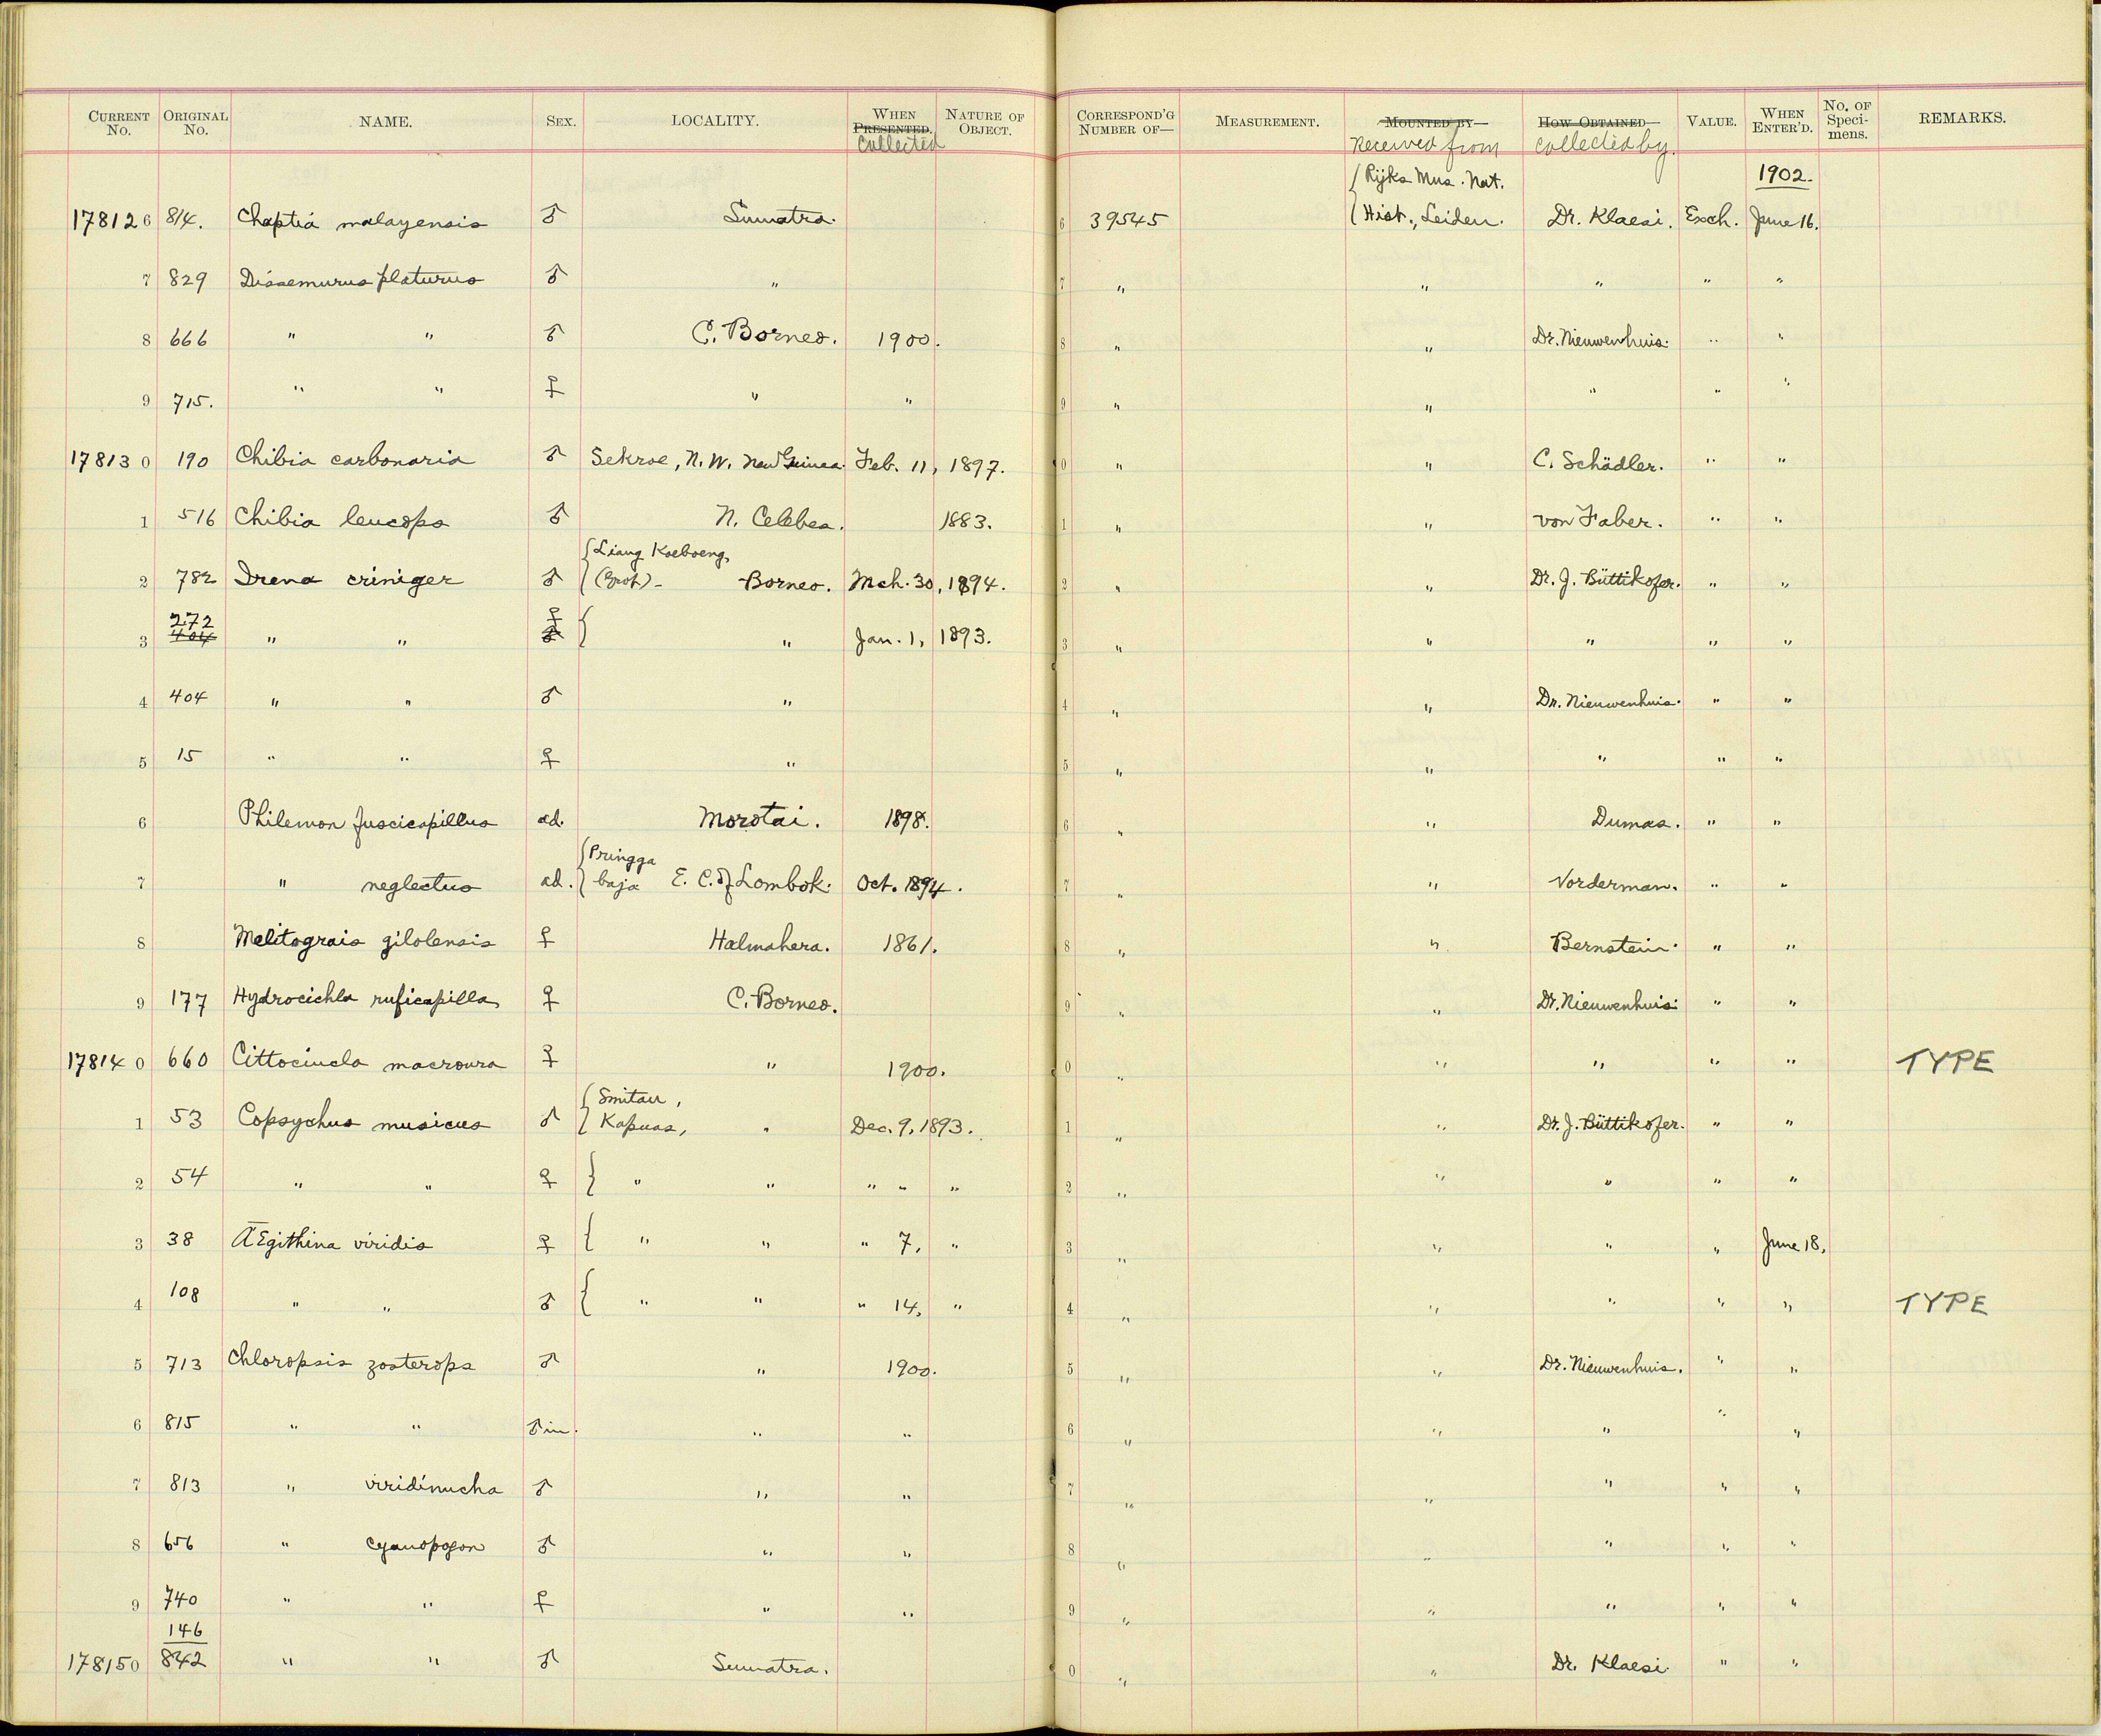 CURRENT No. ORIGINAL No. NAME. SEX. LOCALITY. WHEN PRESENTED. Collected NATURE OF OBJECT. CORRESPOND'G NUMBER OF— MEASUREMENT. MOUNTED BY— Received from HOW OBTAINED— Collected by. VALUE. WHEN ENTER'D. No. OF Speci-mens. REMARKS.
{ Rijks Mus. Nat. 1902.
17812 6 814. Chaptia malayensis ♂ Sumatra. 6 39545 Hist., Leiden. Dr. Klaesi. Exch. June 16.
7 829 Dissemurus platurus ♂ " 7 " " " " "
8 666 " " ♂ C. Borneo. 1900. 8 " " Dr. Nieuwenhuis. " "
9 715. " " ♀ " " 9 " " " " "
17813 0 190 Chibia carbonaria ♂ Sekroe, N. W. New Guinea. Feb. 11, 1897. 0 " " C. Schädler. " "
1 516 Chibia leucops ♂ N. Celebes. 1883. 1 " " von Faber. " "
{ Liang Koeboeng,
2 782 Irena criniger ♂ (Grot) - Borneo. Mch. 30, 1894. 2 " " Dr. J. Büttikofer. " "
272 ♀
3 404 " " ♂ { " Jan. 1, 1893. 3 " " " " "
4 404 " " ♂ " 4 " " Dr. Nieuwenhuis. " "
5 15 " " ♀ " 5 " " " " "
6 Philemon fuscicapillus ad. Morotai. 1898. 6 " " Dumas. " "
{ Pringga
7 " neglectus ad. baja E. C. of Lombok. Oct. 1894. 7 " " Vorderman. " "
8 Melitograis gilolensis ♀ Halmahera. 1861. 8 " " Bernstein. " "
9 177 Hydrocichla ruficapilla ♀ C. Borneo. 9 " " Dr. Nieuwenhuis. " "
17814 0 660 Cittocincla macroura ♀ " 1900. 0 " " " " " TYPE
{ Smitau,
1 53 Copsychus musicus ♂ Kapuas, " Dec. 9, 1893. 1 " " Dr. J. Büttikofer. " "
2 54 " " ♀ { " " " " " 2 " " " " "
3 38 ÆEgithina viridis ♀ { " " " 7, " 3 " " " " June 18,
4 108 " " ♂ { " " " 14, " 4 " " " " " TYPE
5 713 Chloropsis zosterops ♂ " 1900. 5 " " Dr. Nieuwenhuis. " "
6 815 " " ♂ im. " " 6 " " " " "
7 813 " viridinucha ♂ " " 7 " " " " "
8 656 " cyanopogon ♂ " " 8 " " " " "
9 740 " " ♀ " " 9 " " " " "
146
17815 0 842 " " ♂ Sumatra. 0 " " Dr. Klaesi " "